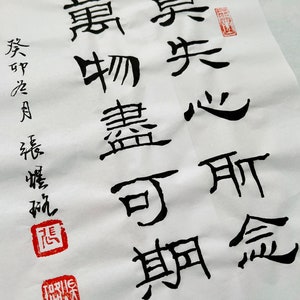 莫失心所念
萬物盡可期
癸卯冬月 張耀
張